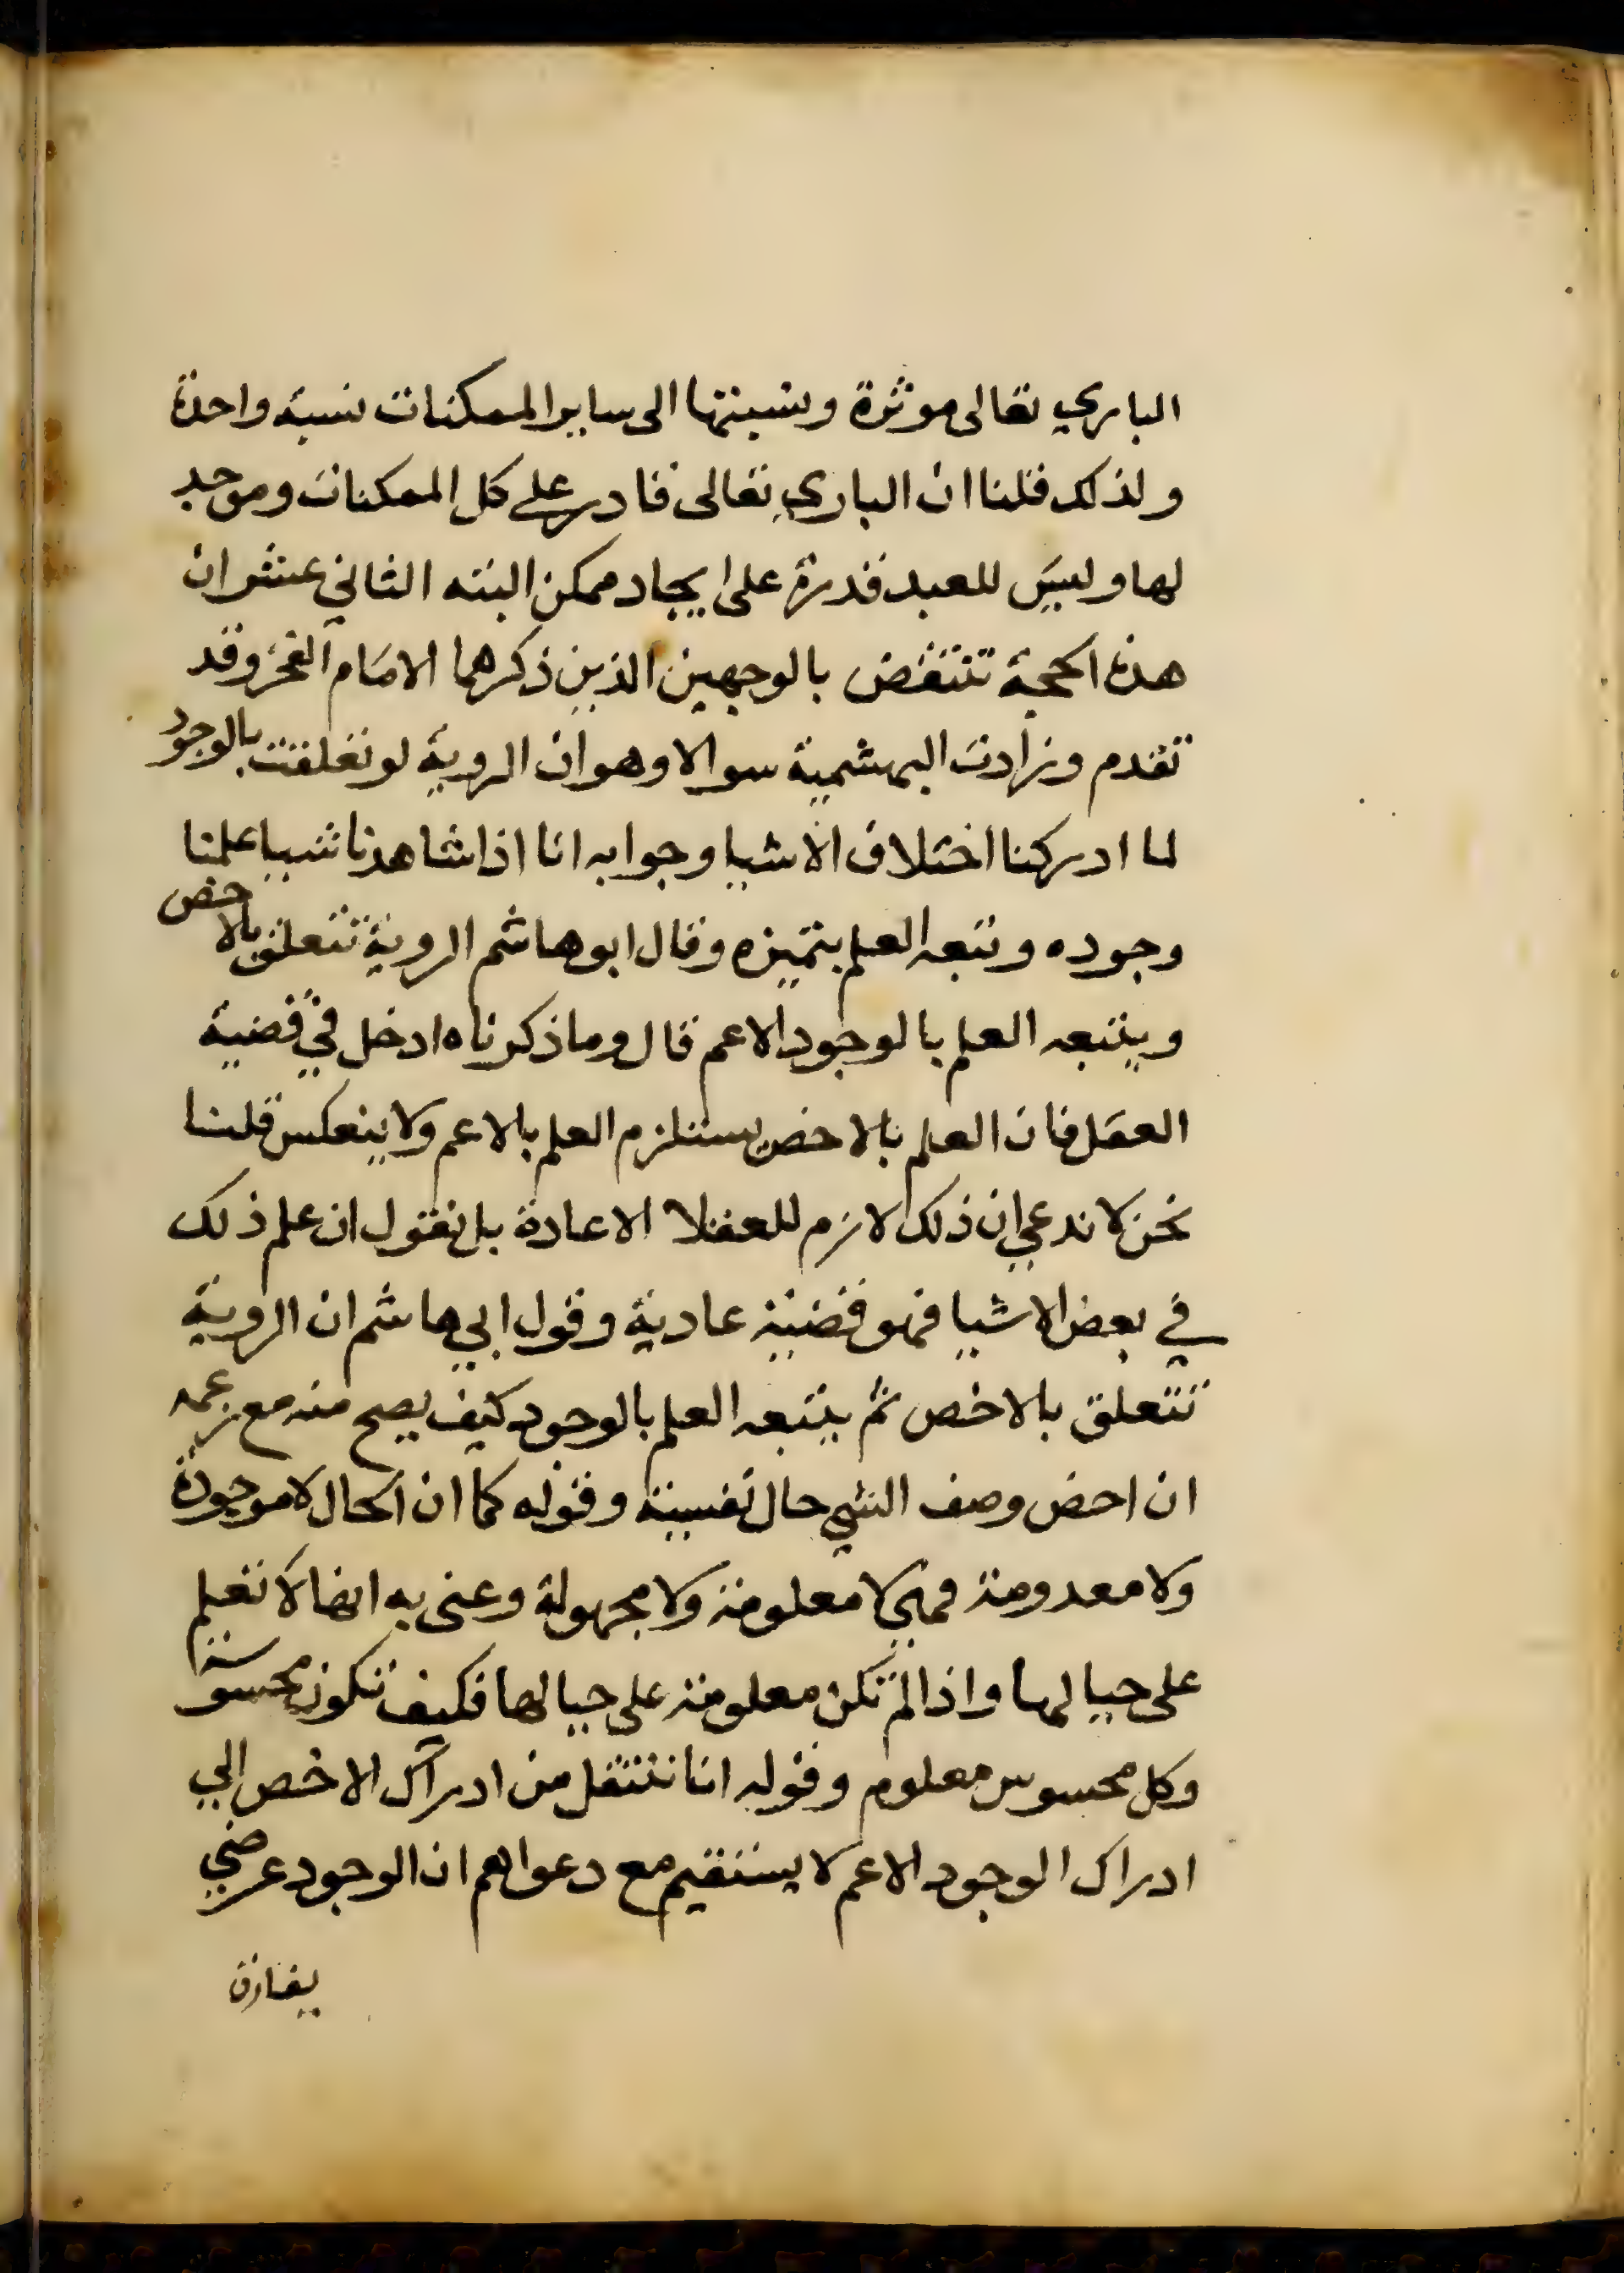 الباري تعالى موثرة ونسبتها الى ساير الممكنات نسبة واحدة
ولذلك قلنا ان الباري تعالى قادر على كل الممكنات وموجد
لها وليس للعبد قدرة على ايجاد ممكن البته الثاني عشر ان
هذه الحجة تنتقض بالوجهين الذين ذكرهما الامام الفخر وقد
تقدم وزادت البهشمية سوالا وهو ان الروية لو تعلقت بالوجود
لما ادركنا اختلاف الاشيا وجوابه انا اذا شاهدنا شييا علمنا
وجوده وتتبعه العلم بتميزه وقال ابو هاشم الروية تتعلق بالاخص
ويتبعه العلم بالوجود الاعم قال وما ذكرناه ادخل في قضية
العقل فان العلم بالاخص يستلزم العلم بالاعم ولا ينعكس قلنا
نحن لا ندعي ان ذلك لازم للعقلا الا عادة بل نقول ان علم ذلك
في بعض الاشيا فهو قضية عادية وقول ابي هاشم ان الروية
تتعلق بالاخص ثم يتبعه العلم بالوجود كيف يصح منه مع زعمه
ان اخص وصف الشي حال نفسية وقوله كما ان الحال لا موجودة
ولا معدومة فهي لا معلومة ولا مجهولة وعنى به انها لا تعلم
على حيالها واذا لم تكن معلومة على حيالها فكيف تكون محسوسة
وكل محسوس معلوم وقوله انا ننتقل من ادراك الاخص الي
ادراك الوجود الاعم لا يستقيم مع دعواهم ان الوجود عرضي
يفارق